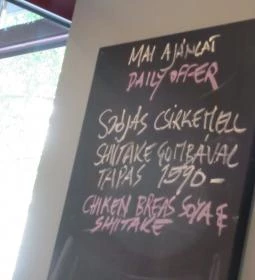 MAI AJÁNLAT
DAILY OFFER
SZÓJÁS CSIRKEMELL
SHIITAKE GOMBÁVAL
TAPAS 1990-
CHIKEN BREAS SOYA &
SHIITAKE